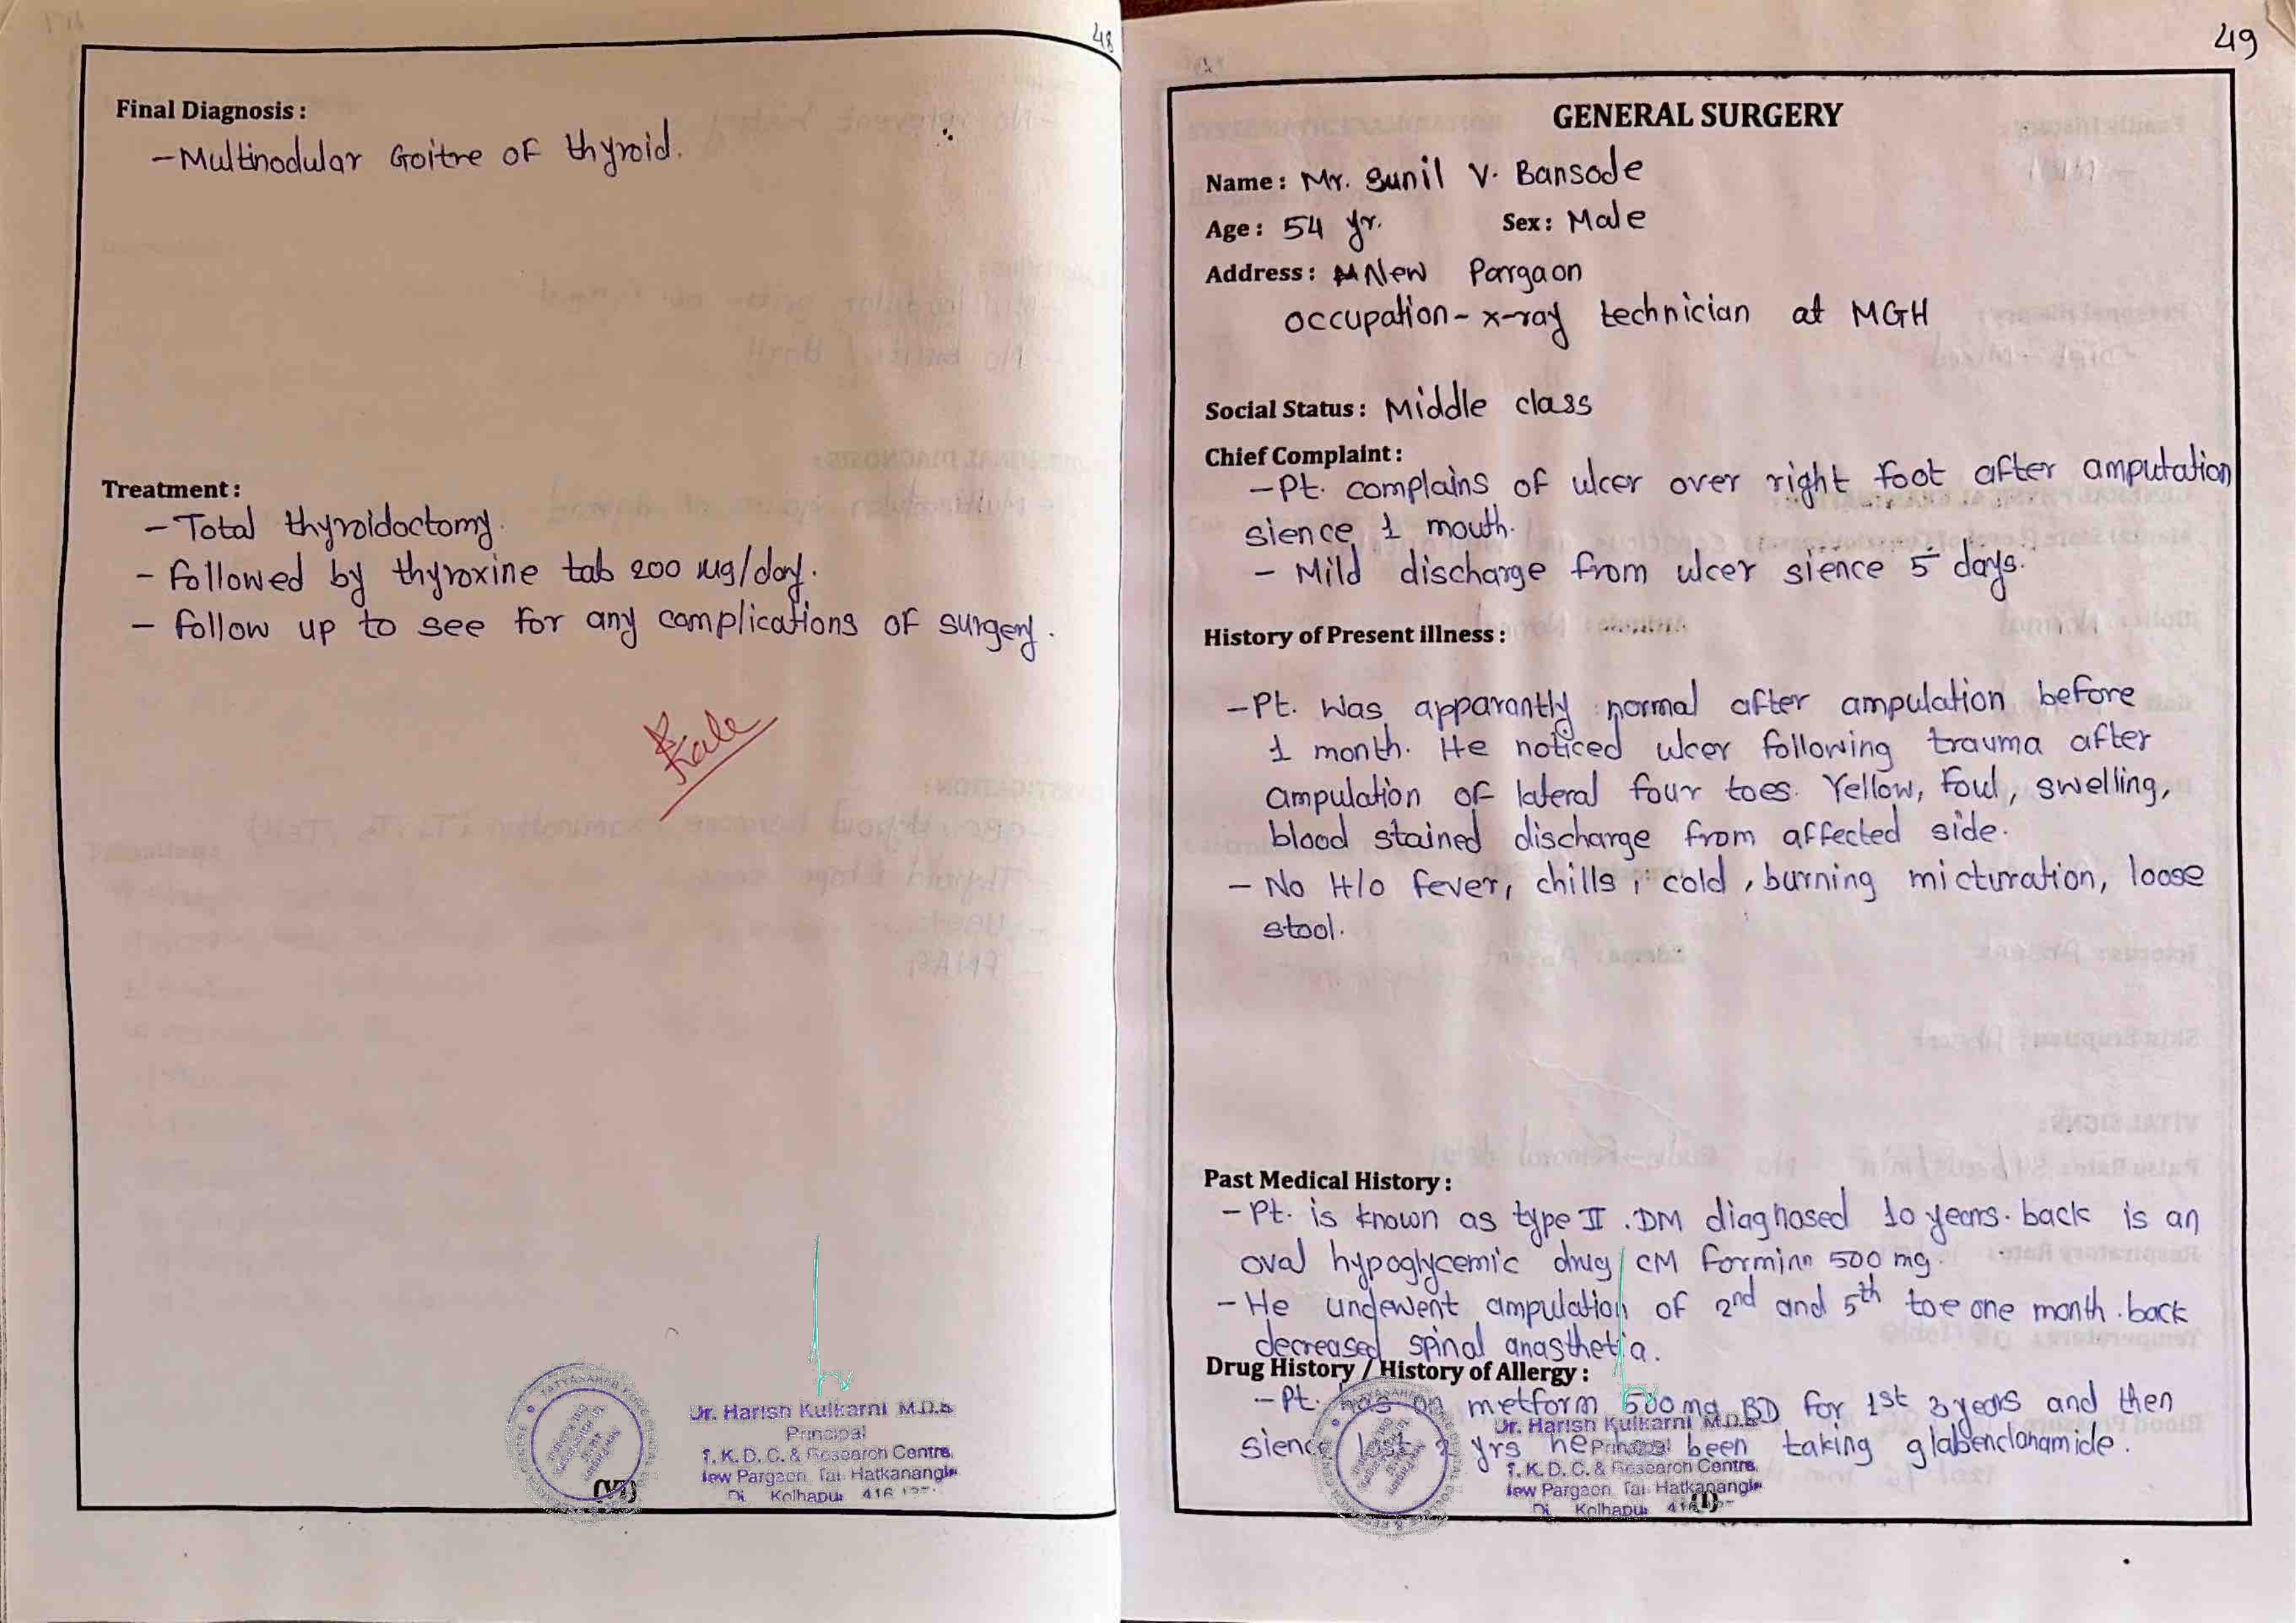 48
Final Diagnosis :
- Multinodular Goitre of thyroid.
Treatment :
- Total thyroidoctomy.
- followed by thyroxine tab 200 µg/day.
- follow up to see for any complications of surgery.
Kale
Dr. Harish Kulkarni M.D.S
Principal
T. K. D. C. & Research Centre,
New Pargaon, Tal. Hatkanangle
Di Kolhapur 416
49
GENERAL SURGERY
Name : Mr. Sunil V. Bansode
Age : 54 yr. Sex : Male
Address : New Pargaon
occupation - x-ray technician at MGH
Social Status : Middle class
Chief Complaint :
- Pt. complains of ulcer over right foot after amputation
sience 1 mouth.
- Mild discharge from ulcer sience 5 days.
History of Present illness :
- Pt. was apparantly normal after ampulation before
1 month. He noticed ulcer following trauma after
ampulation of lateral four toes. Yellow, foul, swelling,
blood stained discharge from affected side.
- No H/o fever, chills, cold, burning micturation, loose
stool.
Past Medical History :
- Pt. is known as type II . DM diagnosed 10 years. back is an
oval hypoglycemic drug CM forminn 500 mg.
- He undewent ampulation of 2nd and 5th toe one month . back
decreased spinal anasthetia.
Drug History / History of Allergy :
- Pt. on metform 500 mg BD for 1st 3 years and then
sience last yrs he been taking glabenclahamide.
Dr. Harish Kulkarni M.D.S
Principal
T. K. D. C. & Research Centre,
New Pargaon, Tal. Hatkanangle
Di Kolhapur 416
(1)